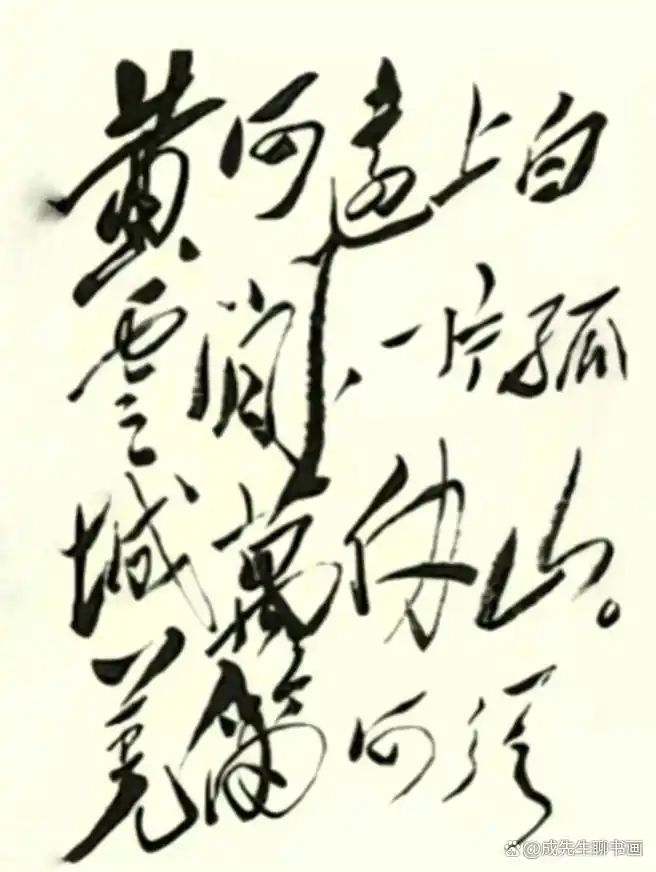 黄河远上白
云间、一片孤
城万仞山。
羌笛何须
@成先生聊书画